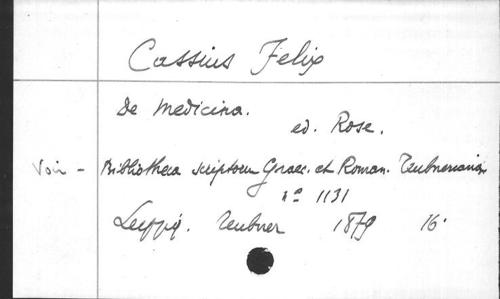 Cassius Felix
De Medicina.
ed. Rose.
Voir - Bibliotheca scriptorum Graec. et Roman. Teubneriana
nº 1131
Leipzig. Teubner 1879 16º